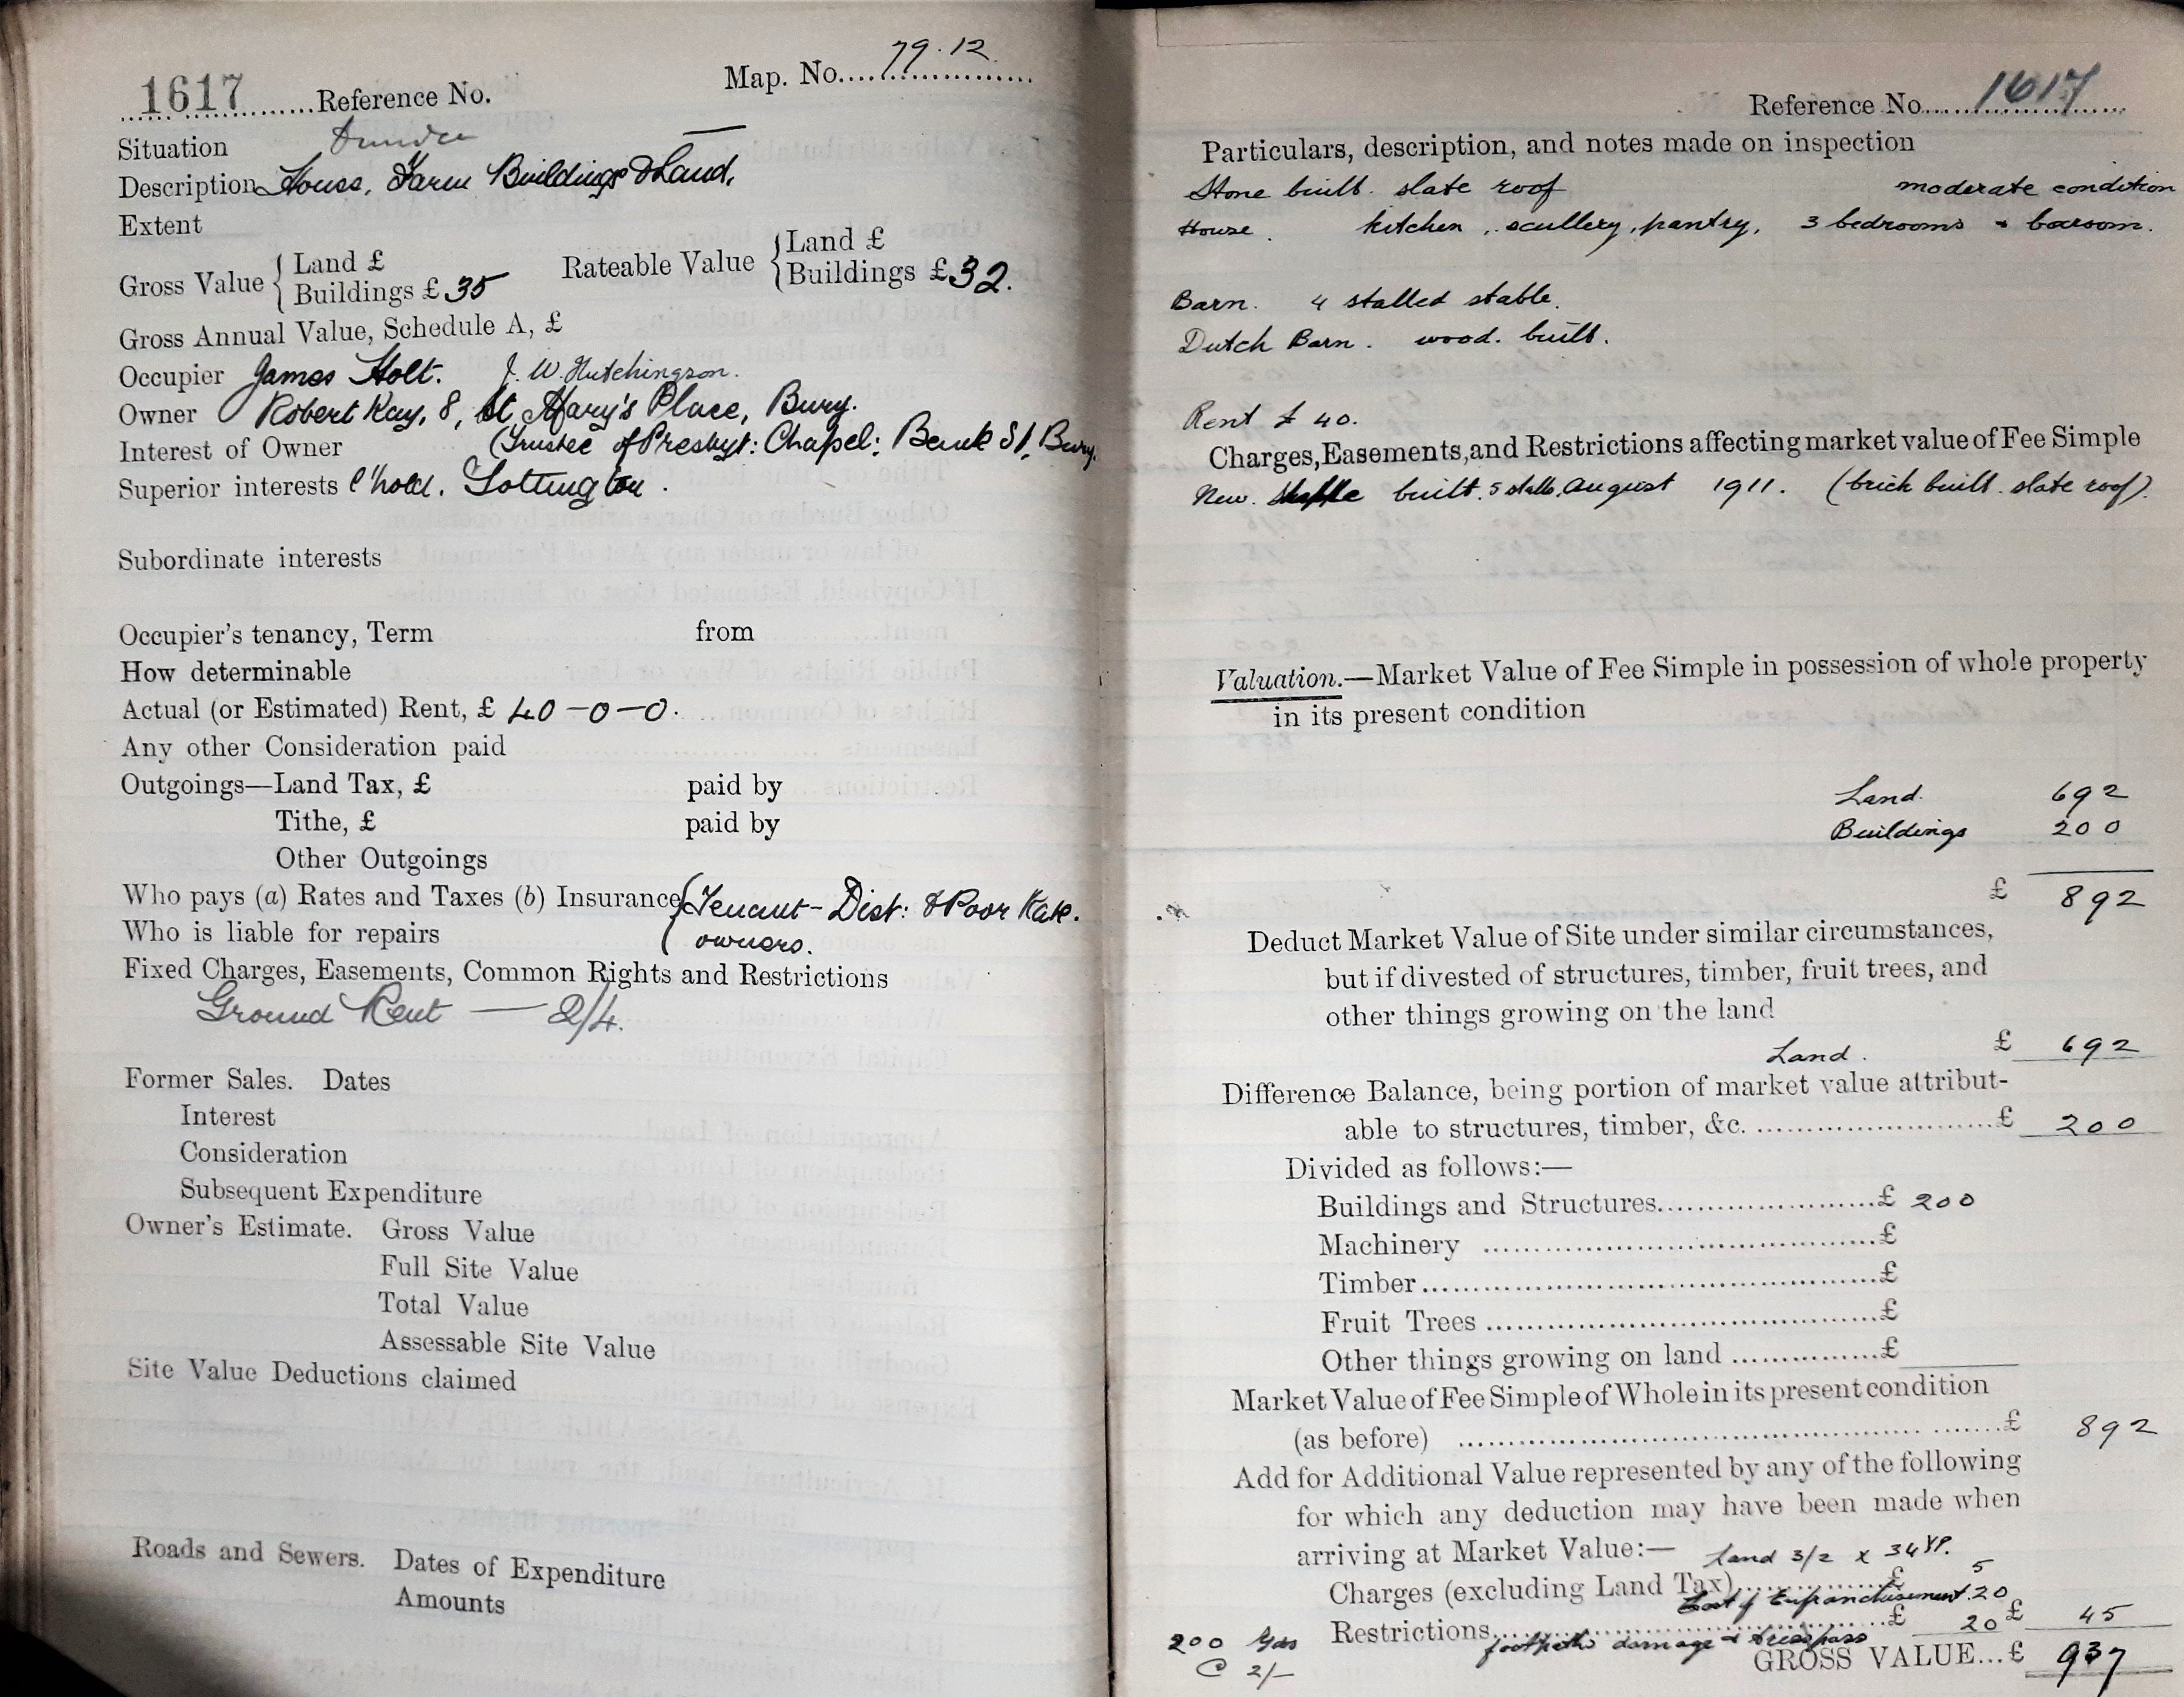 1617 ........Reference No.
Map. No. 79.12
Situation Dundee
Description House, Farm Buildings & Land.
Extent
Gross Value { Land £
Buildings £ 35
Rateable Value { Land £
Buildings £ 32.
Gross Annual Value, Schedule A, £
Occupier James Holt. J. W. Hutchingson.
Owner Robert Kay, 8, St Mary's Place, Bury.
Interest of Owner (Trustee of Presbyt: Chapel: Bank St, Bury.
Superior interests C'hold. Tottington.
Subordinate interests
Occupier's tenancy, Term from
How determinable
Actual (or Estimated) Rent, £ 40-0-0.
Any other Consideration paid
Outgoings—Land Tax, £ paid by
Tithe, £ paid by
Other Outgoings
Who pays (a) Rates and Taxes (b) Insurance { Tenant - Dist: & Poor Rate.
Who is liable for repairs owners.
Fixed Charges, Easements, Common Rights and Restrictions
Ground Rent — 2/4.
Former Sales. Dates
Interest
Consideration
Subsequent Expenditure
Owner's Estimate. Gross Value
Full Site Value
Total Value
Assessable Site Value
Site Value Deductions claimed
Roads and Sewers. Dates of Expenditure
Amounts
Reference No. 1617
Particulars, description, and notes made on inspection
Stone built. slate roof moderate condition
House. kitchen, scullery, pantry, 3 bedrooms & boxroom.
Barn. 4 stalled stable.
Dutch Barn. wood. built.
Rent £ 40.
Charges, Easements, and Restrictions affecting market value of Fee Simple
New. built. 5 stalls, August 1911. (brick built. slate roof).
Valuation.—Market Value of Fee Simple in possession of whole property
in its present condition
Land. 692
Buildings 200
£ 892
Deduct Market Value of Site under similar circumstances,
but if divested of structures, timber, fruit trees, and
other things growing on the land
Land. £ 692
Difference Balance, being portion of market value attribut-
able to structures, timber, &c. ........................£ 200
Divided as follows:—
Buildings and Structures........................£ 200
Machinery ........................£
Timber........................£
Fruit Trees ........................£
Other things growing on land ...............£
Market Value of Fee Simple of Whole in its present condition
(as before) ........................£ 892
Add for Additional Value represented by any of the following
for which any deduction may have been made when
arriving at Market Value:— Land 3/2 x 34 YP.
Charges (excluding Land Tax)...............£ 5
Cost of Enfranchisement. 20
Restrictions...............£ 20 £ 45
footpaths damage & trespass
200 Yds
@ 2/-
GROSS VALUE...£ 937